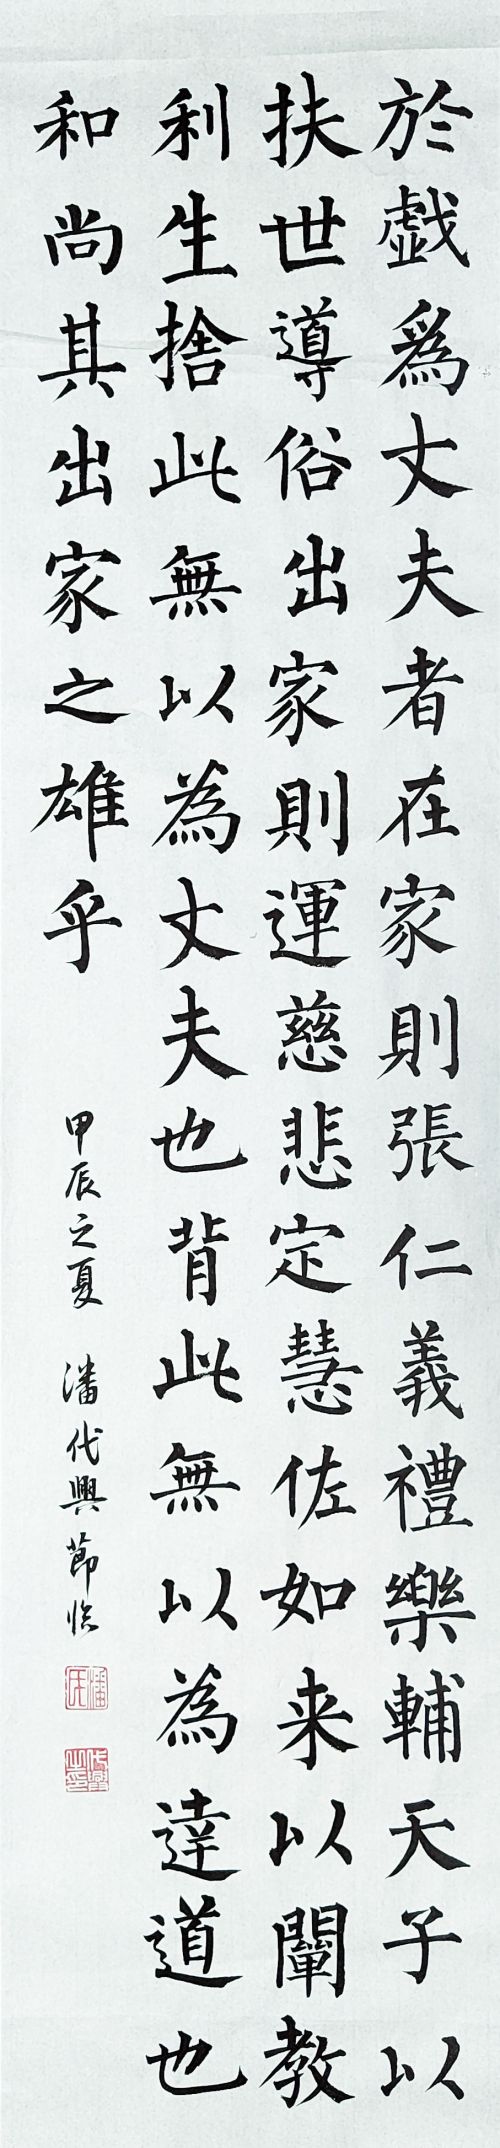 於戲爲丈夫者在家則張仁義禮樂輔天子以
扶世導俗出家則運慈悲定慧佐如来以闡教
利生捨此無以為丈夫也背此無以為達道也
和尚其出家之雄乎
甲辰之夏 潘代興節臨
潘氏